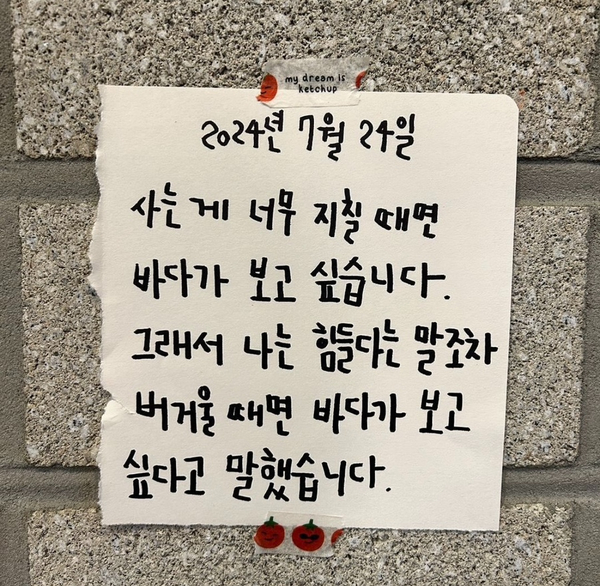 my dream is
ketchup
2024년 7월 24일
사는 게 너무 지칠 때면
바다가 보고 싶습니다.
그래서 나는 힘들다는 말조차
버거울 때면 바다가 보고
싶다고 말했습니다.